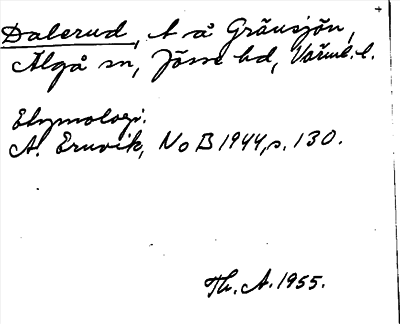 Dalerud, t å Gränsjön,
Älgå sn, Jösse hd, Värml. l.
Etymologi.
A. Ernvik, NoB 1944, s. 130.
Th. A. 1955.